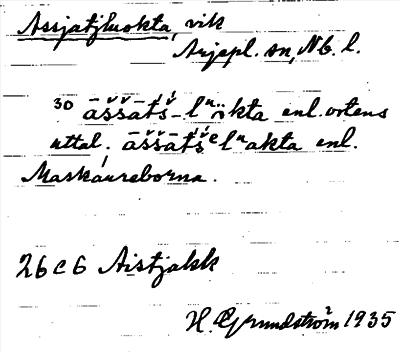 Assjatjluokta, vik
Arjepl. sn, Nb. l.
30 āššātš-luökta enl. ortens
uttal. āššātšᵉluakta enl.
Maskaureborna.
26 c 6 Aistjakk
H. Grundström 1935